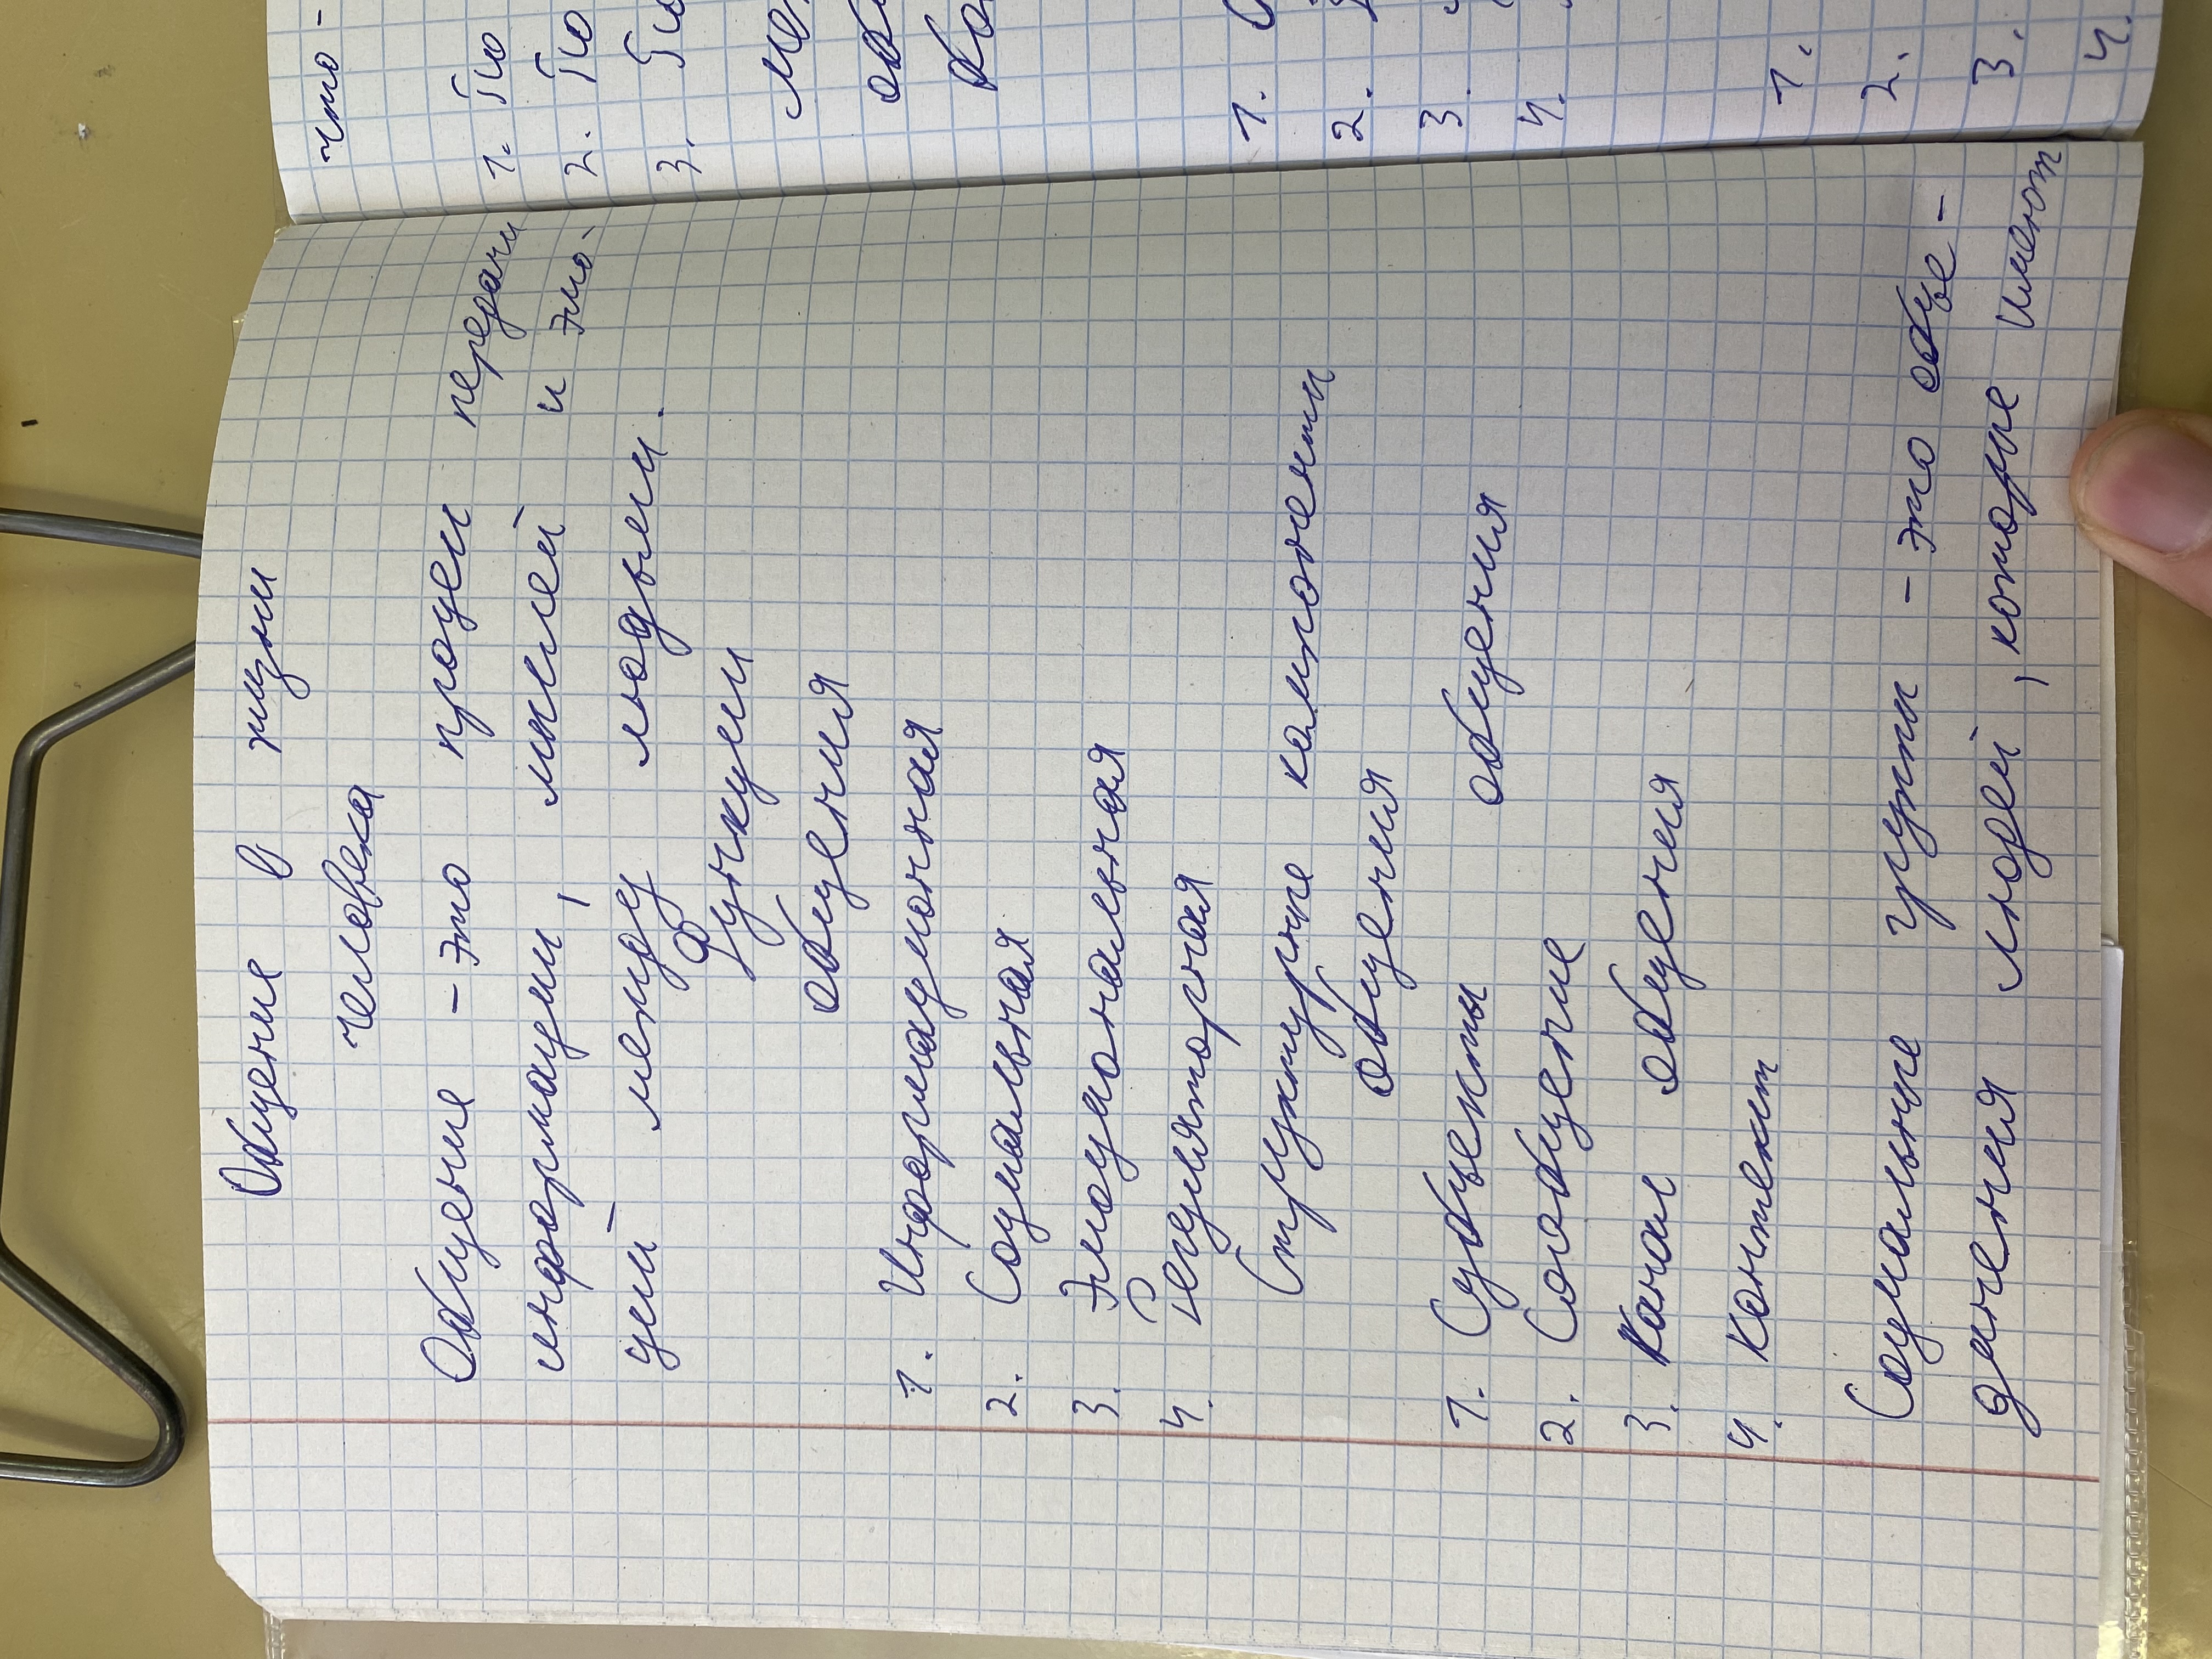 Общение в жизни
человека
Общение - это процесс передачи
информации, мыслей и эмо-
ций между людьми.
Функции
общения
1. Информационная
2. Социальная
3. Эмоциональная
4. Регуляторная
Структурные компоненты
общения
1. Субъекты общения
2. Сообщение
3. Канал общения
4. Контекст
Социальные группы - это объе-
динения людей, которые имеют
что-
1. По
2. По
3. По
1.
2.
3.
4.
1.
2.
3.
4.